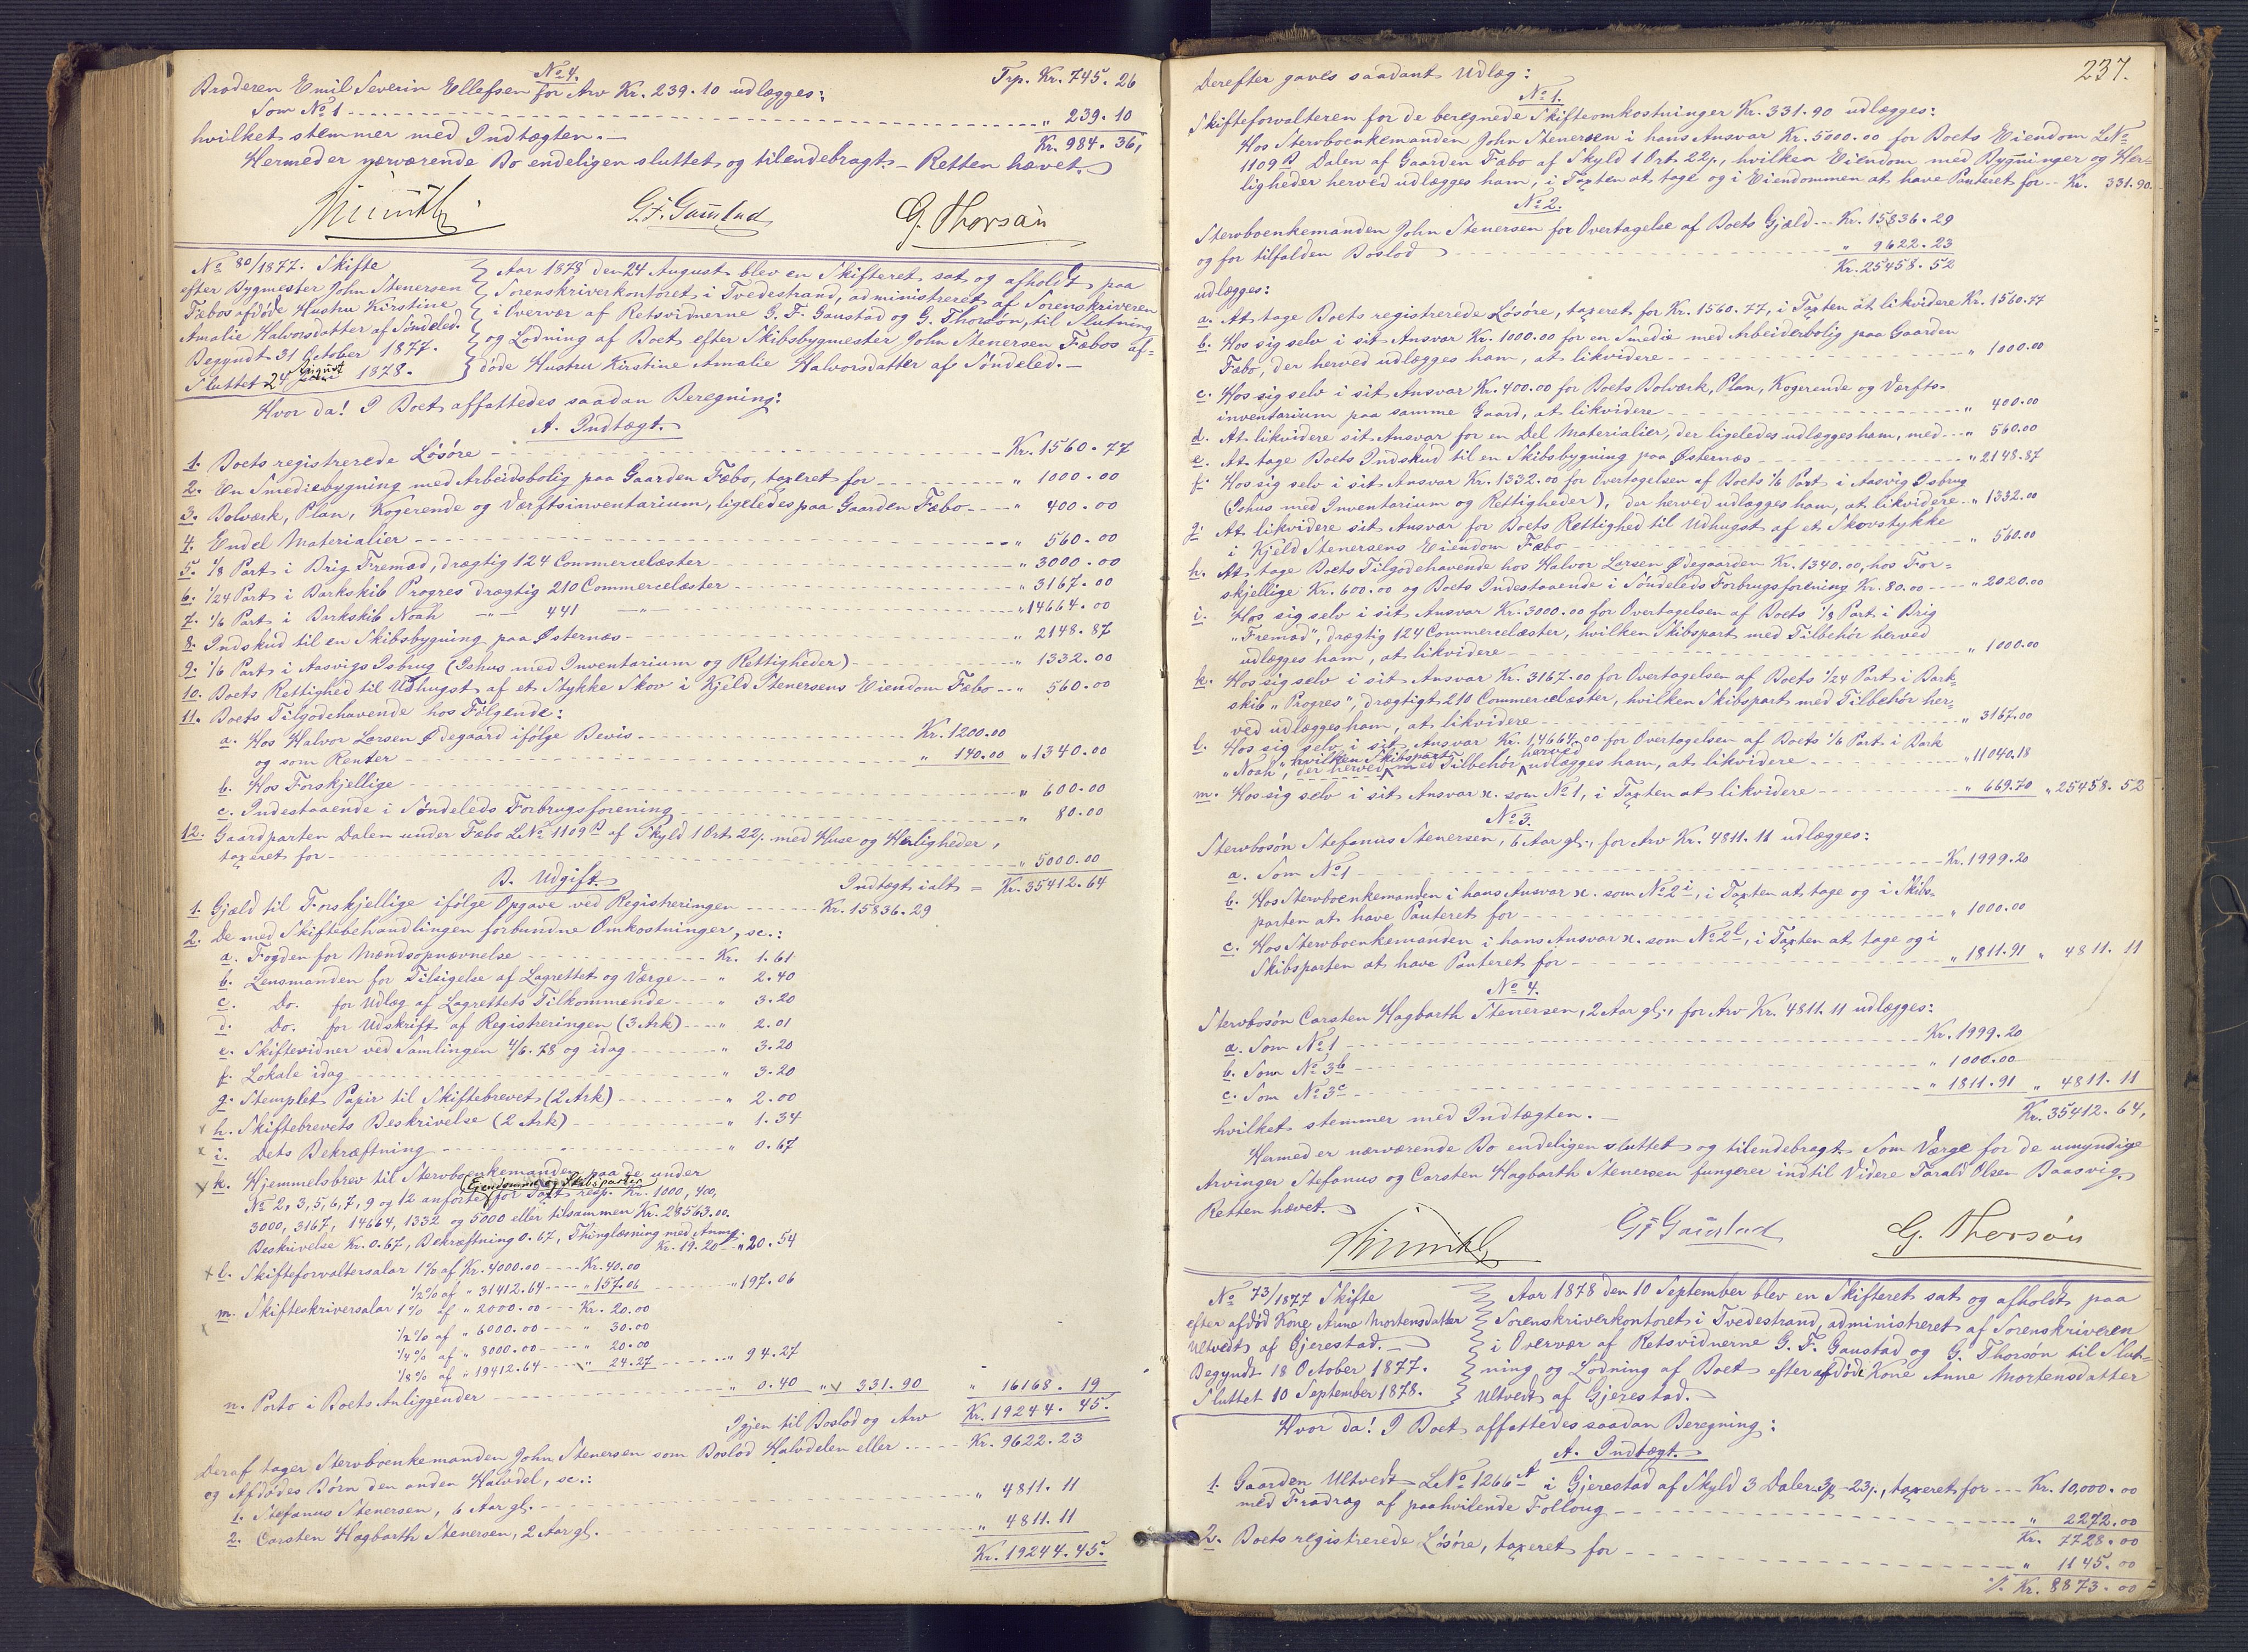 No 4.
Broderen Emil Severin Ellefsen for Arv Kr. 239.10 udlægges:
Trp. Kr. 745. 26
Som No 1 " 239. 10
hvilket stemmer med Indtægten.— Kr. 984. 36,
Hermed er nærværende Bo endeligen sluttet og tilendebragt.— Retten hævet.
G. F. Gaustad G. Thorsøn
No 80/1877. Skifte
efter Bygmester John Stenersen
Fæbos afdøde Hustru Kirstine
Amalie Halvorsdatter af Søndeled.
Begyndt 31 October 1877.
Sluttet 24 August 1878.
Aar 1878 den 24 August blev en Skifteret sat og afholdt paa
Sorenskriverkontoret i Tvedestrand, administreret af Sorenskriveren
i Overvær af Retsvidnerne G. F. Gaustad og G. Thorsøn, til Slutning
og Lodning af Boet efter Skibsbygmester John Stenersen Fæbos af-
døde Hustru Kirstine Amalie Halvorsdatter af Søndeled.—
Hvor da! I Boet affattedes saadan Beregning:
A. Indtægt.
1. Boets registrerede Løsøre Kr. 1560. 77
2. En Smediebygning med Arbeidsbolig paa Gaarden Fæbo, taxeret for " 1000. 00
3. Bolværk, Plan, Kogerende og Værftsinventarium, ligeledes paa Gaarden Fæbo " 400. 00
4. Endel Materialier " 560. 00
5. 1/8 Part i Brig Fremad, drægtig 124 Commercelæster " 3000. 00
6. 1/24 Part i Barkskib Progres drægtig 210 Commercelæster " 3167. 00
7. 1/6 Part i Barkskib Noah " 441 " " 14664. 00
8. Indskud til en Skibsbygning paa Østernæs " 2148. 87
9. 1/6 Part i Aasvigs Isbrug (Ishus med Inventarium og Rettigheder) " 1332. 00
10. Boets Rettighed til Udhugst af et Stykke Skov i Kjeld Stenersens Eiendom Fæbo " 560. 00
11. Boets Tilgodehavende hos Følgende:
a. Hos Halvor Larsen Ødegaard ifølge Bevis Kr. 1200.00
og som Renter " 140.00 " 1340.00
b. Hos Forskjellige " 600.00
c. Indestaaende i Søndeleds Forbrugsforening " 80.00
12. Gaardparten Dalen under Fæbo LNo 1109 b af Skyld 1 Ort 22 s. med Huse og Herligheder,
taxeret for " 5000.00
Indtægt ialt = Kr. 35412. 64
B. Udgift.
1. Gjæld til Forskjellige ifølge Opgave ved Registreringen Kr. 15836.29
2. De med Skiftebehandlingen forbundne Omkostninger, sc.:
a. Fogden for Mændsopnævnelse Kr. 1.61
b. Lensmanden for Tilsigelse af Lagrettet og Værge " 2.40
c. Do. for Udlæg af Lagrettets Tilkommende " 3.20
d. Do. for Udskrift af Registreringen (3 Ark) " 2.01
e. Skiftevidner ved Samlingen 4/6. 78 og idag " 3.20
f. Lokale idag " 3.20
g. Stemplet Papir til Skiftebrevet (2 Ark) " 2.00
h. Skiftebrevets Beskrivelse (2 Ark) " 1.34
i. Dets Bekræftning " 0.67
k. Hjemmelsbrev til Stervboenkemanden paa de under
Eiendomme og Skibsparter
No 2, 3, 5, 6, 7, 9 og 12 anførte for Taxt resp. Kr. 1000, 400,
3000, 3167, 14664, 1332 og 5000 eller tilsammen Kr. 28563.00.
Beskrivelse Kr. 0.67, Bekræftning 0.67, Thinglæsning med Anmp.
Kr. 19.20 " 20.54
l. Skifteforvaltersalar 1% af Kr. 4000.00 Kr. 40.00
1/2% af " 31412.64 " 157.06 " 197.06
m. Skifteskriversalar 1% af " 2000.00 Kr. 20.00
1/2% af " 6000.00 " 30.00
1/4% af " 8000.00 " 20.00
1/8% af " 19412.64 " 24.27 " 94.27
n. Porto i Boets Anliggender " 0.40 " 331.90 " 16168. 19
Igjen til Boslod og Arv Kr. 19244. 45.
Deraf tager Stervboenkemanden John Stenersen som Boslod Halvdelen eller Kr. 9622. 23
og Afdødes Børn den anden Halvdel, sc.:
1. Stefanus Stenersen, 6 Aar gl. " 4811. 11
2. Carsten Hagbarth Stenersen, 2 Aar gl. " 4811. 11
Kr. 19244. 45.
237.
Derefter gaves saadant Udlæg:
No 1.
Skifteforvalteren for de beregnede Skifteomkostninger Kr. 331.90 udlægges:
Hos Stervboenkemanden John Stenersen i hans Ansvar Kr. 5000.00 for Boets Eiendom LNo
1109 b Dalen af Gaarden Fæbo af Skyld 1 Ort 22 s., hvilken Eiendom med Bygninger og Her-
ligheder herved udlægges ham, i Taxten at tage og i Eiendommen at have Panteret for Kr. 331.90.
No 2.
Stervboenkemanden John Stenersen for Overtagelse af Boets Gjæld Kr. 15836.29
og for tilfalden Boslod " 9622.23
Kr. 25458.52
udlægges:
a. At tage Boets registrerede Løsøre, taxeret for Kr. 1560.77, i Taxten at likvidere Kr. 1560.77
b. Hos sig selv i sit Ansvar Kr. 1000.00 for en Smedie med Arbeiderbolig paa Gaarden
Fæbo, der herved udlægges ham, at likvidere " 1000.00
c. Hos sig selv i sit Ansvar Kr. 400.00 for Boets Bolværk, Plan, Kogerende og Værfts-
inventarium paa samme Gaard, at likvidere " 400.00
d. At likvidere sit Ansvar for en Del Materialier, der ligeledes udlægges ham, med " 560.00
e. At tage Boets Indskud til en Skibsbygning paa Østernæs " 2148.87
f. Hos sig selv i sit Ansvar Kr. 1332.00 for Overtagelsen af Boets 1/6 Part i Aasvig Isbrug
(Ishus med Inventarium og Rettigheder), der herved udlægges ham, at likvidere " 1332.00
g. At likvidere sit Ansvar for Boets Rettighed til Udhugst af et Skovstykke
i Kjeld Stenersens Eiendom Fæbo " 560.00
h. At tage Boets Tilgodehavende hos Halvor Larsen Ødegaarden Kr. 1340.00, hos For-
skjellige Kr. 600.00 og Boets Indestaaende i Søndeleds Forbrugsforening Kr. 80.00 " 2020.00
i. Hos sig selv i sit Ansvar Kr. 3000.00 for Overtagelsen af Boets 1/8 Part i Brig
"Fremad", drægtig 124 Commercelæster, hvilken Skibspart med Tilbehør herved
udlægges ham, at likvidere " 1000.00
k. Hos sig selv i sit Ansvar Kr. 3167.00 for Overtagelsen af Boets 1/24 Part i Bark-
skib "Progres", drægtigt 210 Commercelæster, hvilken Skibspart med Tilbehør her-
ved udlægges ham, at likvidere " 3167.00
l. Hos sig selv i sit Ansvar Kr. 14664.00 for Overtagelsen af Boets 1/6 Part i Bark
hvilken Skibspart herved
"Noah", der herved med Tilbehør udlægges ham, at likvidere " 11040.18
m. Hos sig selv i sit Ansvar x. som No 1, i Taxten at likvidere " 669.70 " 25458. 52
No 3.
Stervbosøn Stefanus Stenersen, 6 Aar gl., for Arv Kr. 4811.11 udlægges:
a. Som No 1 Kr. 1999.20
b. Hos Stervboenkemanden i hans Ansvar x. som No 2 i, i Taxten at tage og i Skibs-
parten at have Panteret for " 1000.00
c. Hos Stervboenkemanden i hans Ansvar x. som No 2 l, i Taxten at tage og i
Skibsparten at have Panteret for " 1811.91 " 4811. 11
No 4.
Stervbosøn Carsten Hagbarth Stenersen, 2 Aar gl., for Arv Kr. 4811.11 udlægges:
a. Som No 1 Kr. 1999.20
b. Som No 3 b " 1000.00
c. Som No 3 c " 1811.91 " 4811. 11
hvilket stemmer med Indtægten.— Kr. 35412. 64,
Hermed er nærværende Bo endeligen sluttet og tilendebragt. Som Værge for de umyndige
Arvinger Stefanus og Carsten Hagbarth Stenersen fungerer indtil Videre Tarald Olsen Baasvig.
Retten hævet.
G F Gaustad G. Thorsøn
No 73/1877 Skifte
efter afdød Kone Anne Mortensdatter
Ultvedt af Gjerestad.—
Begyndt 18 October 1877.
Sluttet 10 September 1878.
Aar 1878 den 10 September blev en Skifteret sat og afholdt paa
Sorenskriverkontoret i Tvedestrand, administreret af Sorenskriveren
i Overvær af Retsvidnerne G. F. Gaustad og G. Thorsøn til Slut-
ning og Lodning af Boet efter afdøde Kone Anne Mortensdatter
Ultvedt af Gjerestad.—
Hvor da! I Boet affattedes saadan Beregning:
A. Indtægt.
1. Gaarden Ultvedt LNo 1266 A i Gjerestad af Skyld 3 Daler 3 23 s., taxeret for Kr. 10,000. 00
med Fradrag af paahvilende Folloug " 2272.00
Kr. 7728.00
2. Boets registrerede Løsøre, taxeret for " 1145.00
Kr. 8873.00